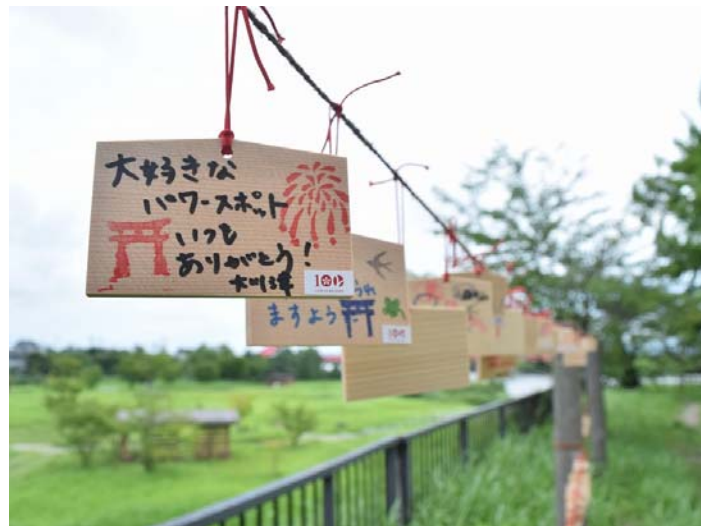 大好きな
パワースポット
いつも
ありがとう!
100
ますよう
100